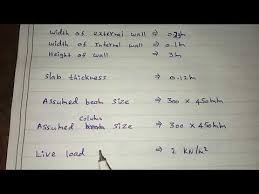 Width of external wall ⇒ 0.2m
Width of internal wall ⇒ 0.1m
Height of wall ⇒ 3m
Slab thickness ⇒ 0.12m
Assumed beam size ⇒ 300 x 450mm
Assumed column size ⇒ 300 x 450mm
Live load ⇒ 2 kN/m²